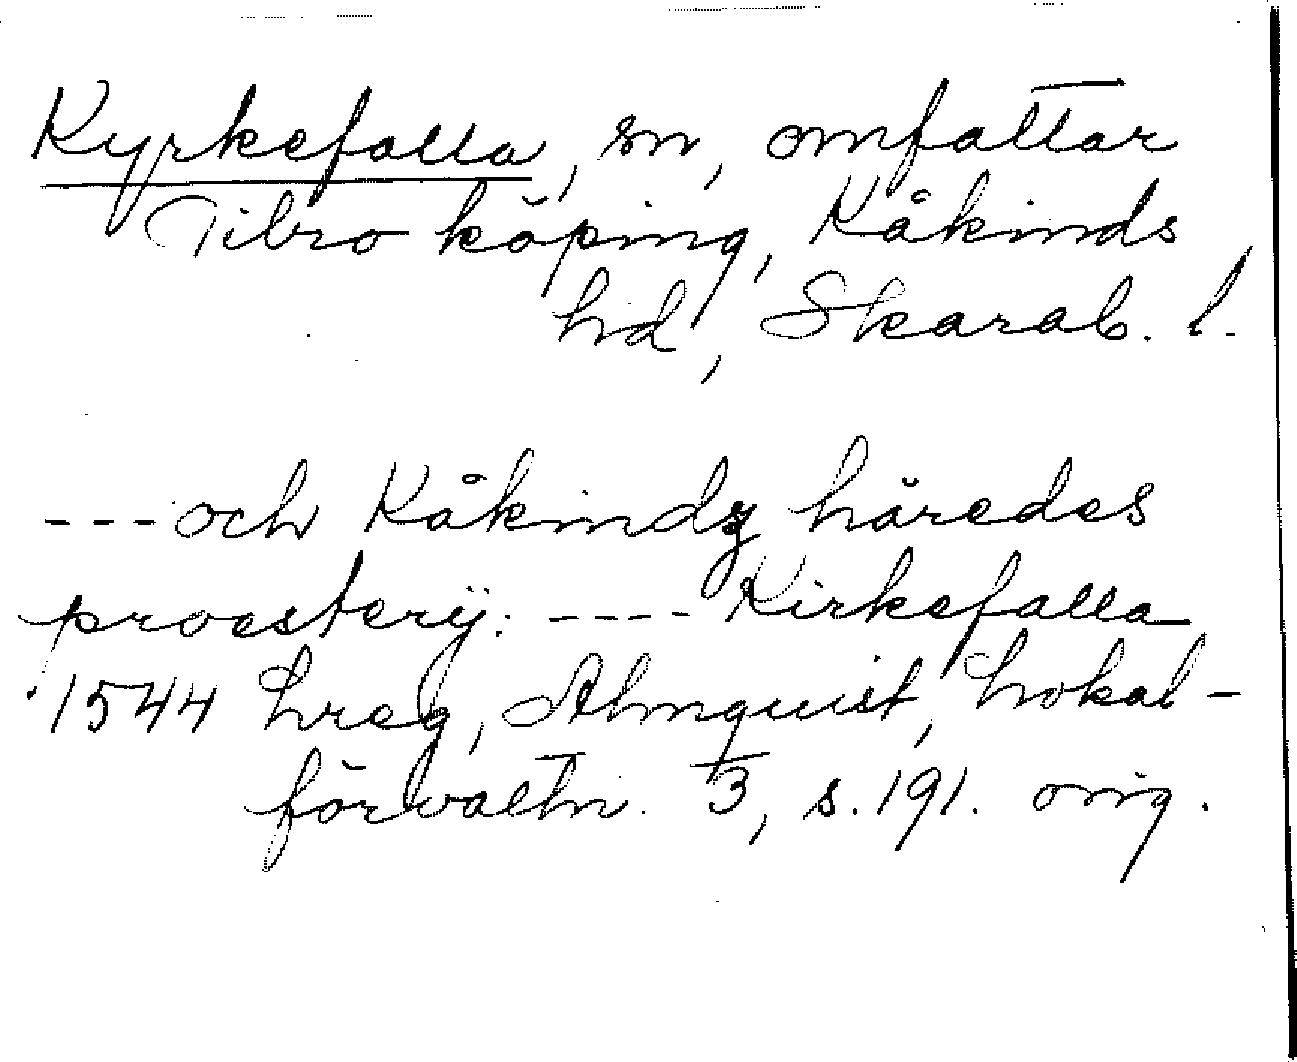 Kyrkefalla, sn, omfattar
Tibro köping, Kåkinds
hd, Skarab. l.
---och Kåkindz häredes
proesterij: ---- Kirkefalla
1544 hreg, Almquist, Lokal-
förvaltn. 3, s. 191. orig.